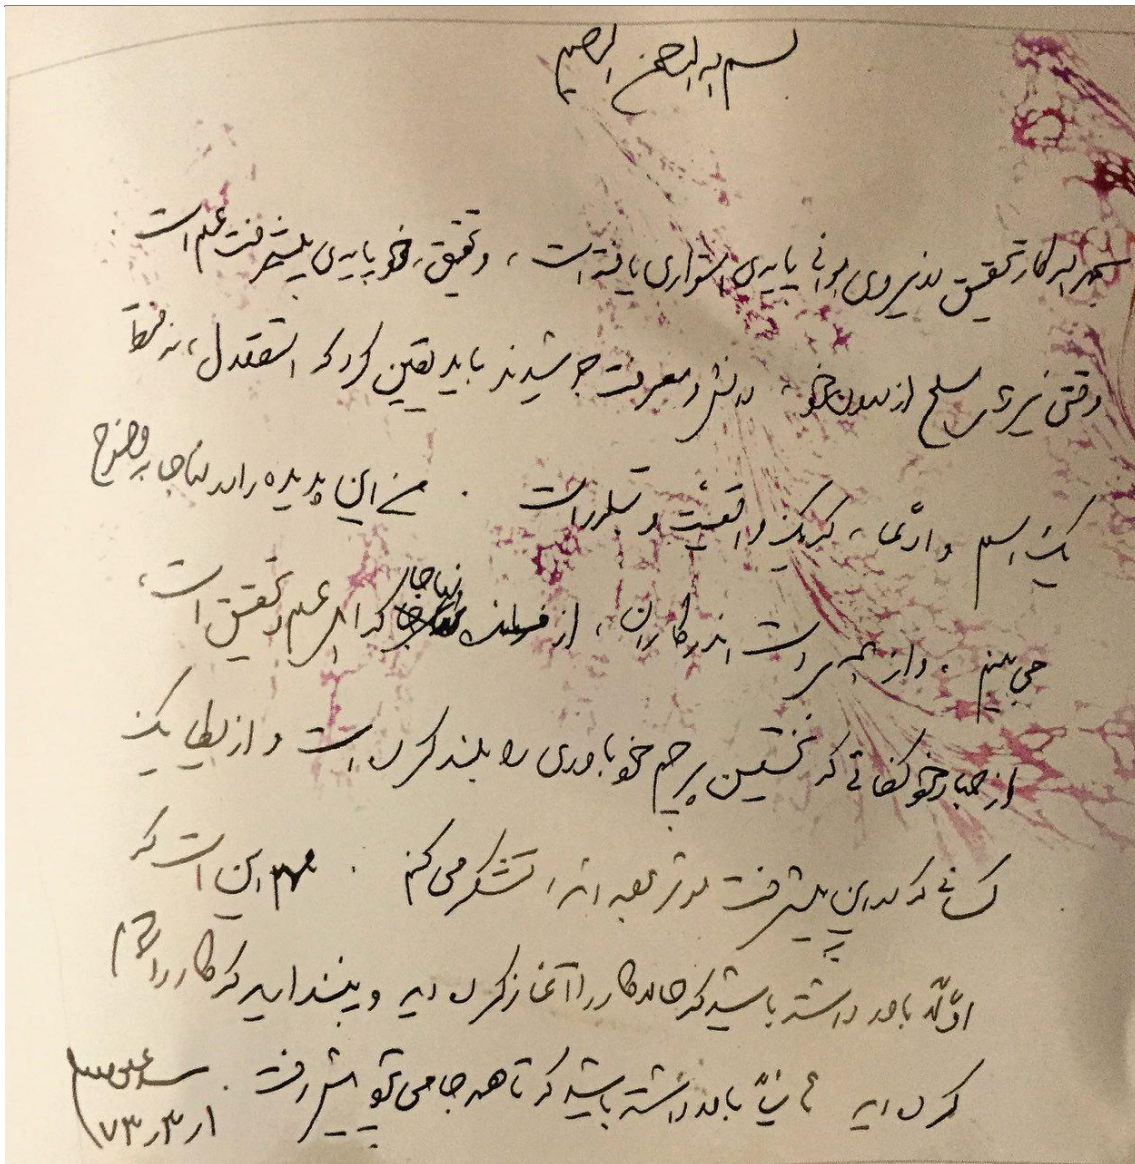 بسم الله الرحمن الرحیم
بحمدالله کار تحقیق در نیروی هوائی پایه‌ی استواری یافته است، و تحقیق، خود پایه‌ی پیشرفت علم است.
وقتی نیروی مسلح از درون خود، دانش و معرفت جوشیدند باید یقین کرد که استقلال، نه فقط
یک اسم و ادعا، که یک واقعیت و تبلور است. من این پدیده را در اینجا به وضوح
می‌بینم. و از همه‌ی دست اندرکاران، از نهاجا که اهل علم و تحقیق است،
از جهاد خودکفائی که نخستین پرچم خودباوری را بلند کرده است و از یکایک
کسانی که در این پیشرفت موثر بوده اند، تشکر می‌کنم. مهم این است که
اولاً باور داشته باشید که حالا کار را آغاز کرده اید و نپندارید که کار را تمام
کرده اید ثانیاً باور داشته باشید که تا همه جا می‌توان پیش رفت.
۷۳/۳/۱